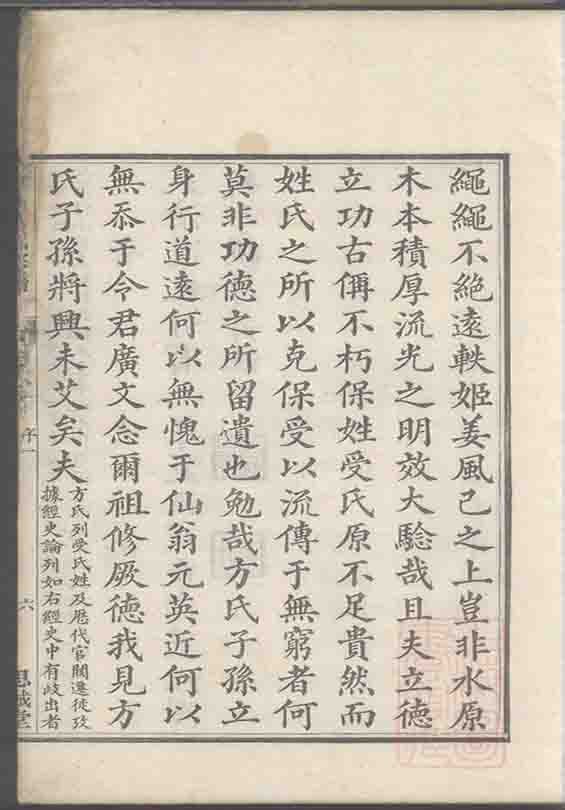 繩繩不絕遠軼姬姜風己之上豈非水原
木本積厚流光之明效大驗哉且夫立德
立功古偁不朽保姓受氏原不足貴然而
姓氏之所以克保受以流傳于無窮者何
莫非功德之所留遺也勉哉方氏子孫立
身行道遠何以無愧于仙翁元英近何以
無忝于令君廣文念爾祖修厥德我見方
氏子孫將興未艾矣夫
方氏列受氏姓及歷代官閥遷徙攷
據經史論列如右經史中有歧出者
序一
六
思誠堂